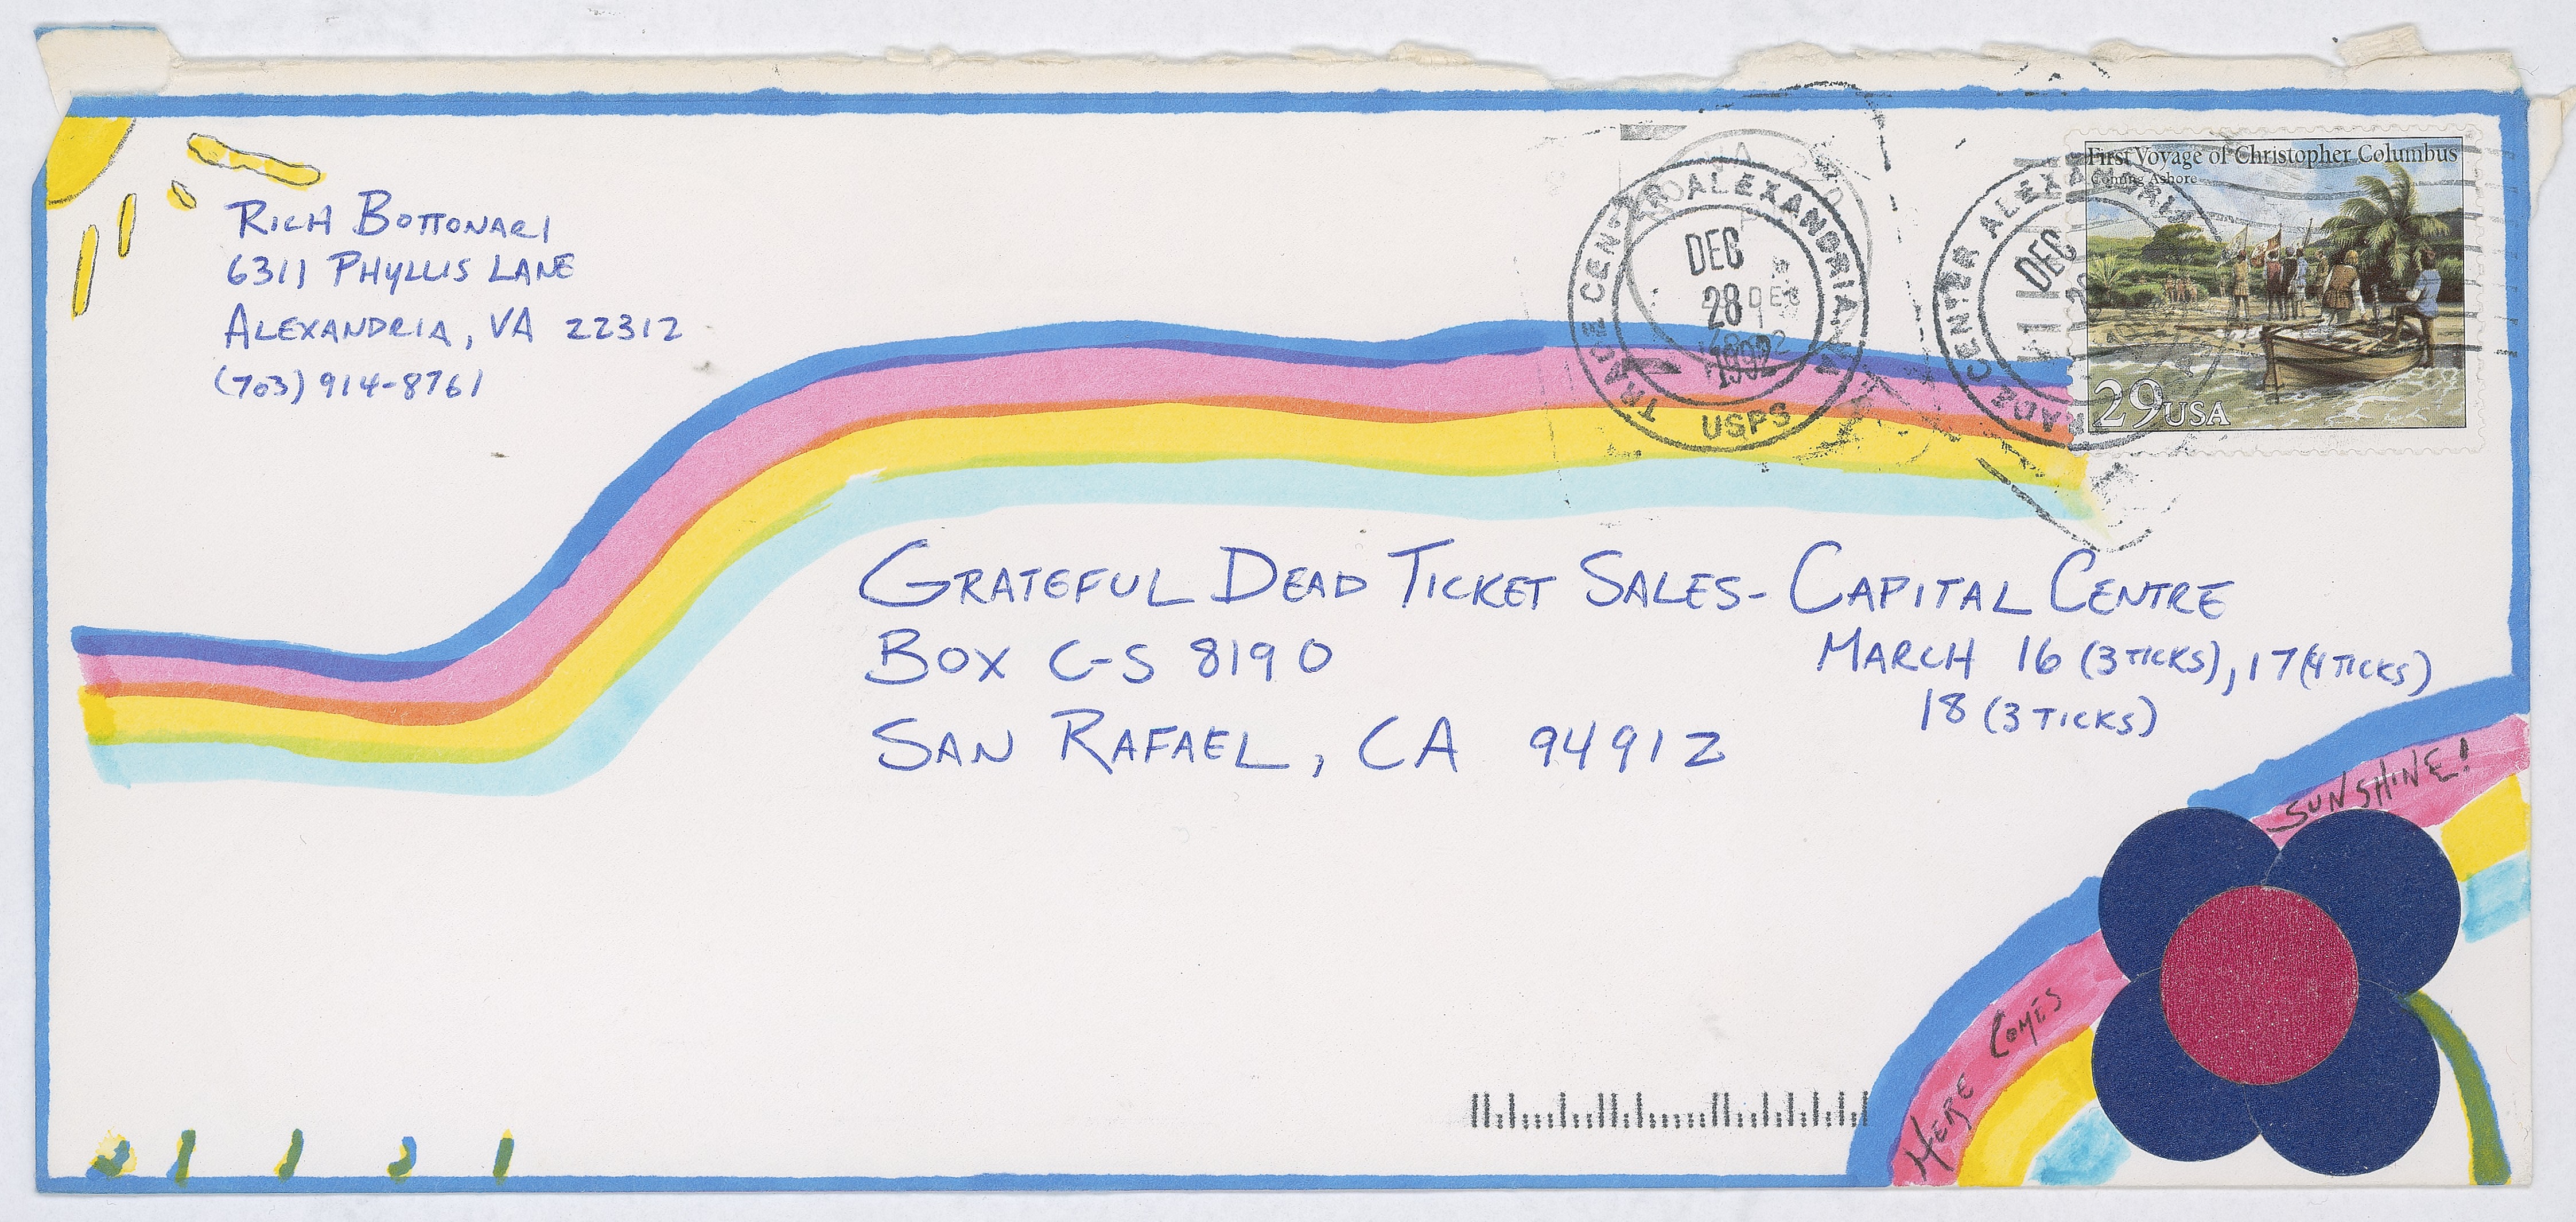 Rich Bottonari
6311 Phyllis Lane
Alexandria, VA 22312
(703) 914-8761
TRADE CENTER ALEXANDRIA, VA
DEC
28
1992
USPS
TRADE CENTER ALEXANDRIA
DEC
First Voyage of Christopher Columbus
Coming Ashore
29 USA
Grateful Dead Ticket Sales - Capital Centre
Box C-S 8190
March 16 (3 ticks), 17 (4 ticks)
18 (3 ticks)
San Rafael, CA 94912
Here Comes Sunshine!